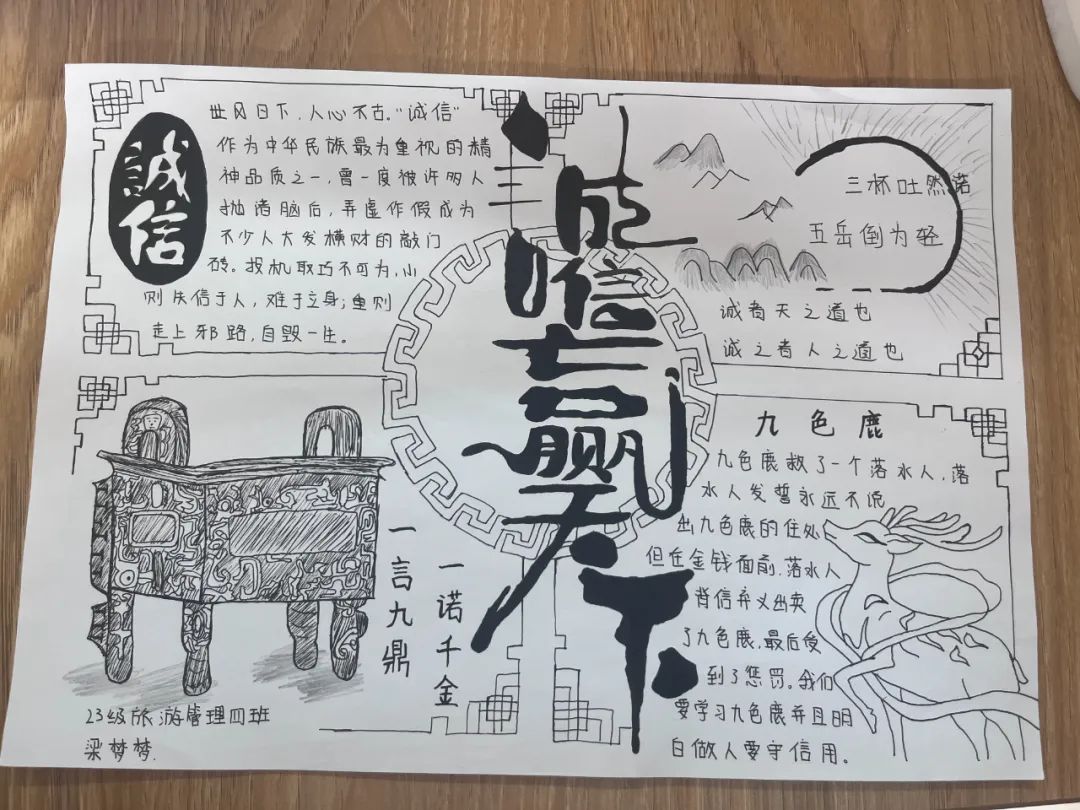 誠信
世风日下,人心不古。"诚信"
作为中华民族最为重视的精
神品质之一,曾一度被许多人
抛诸脑后,弄虚作假成为
不少人大发横财的敲门
砖。投机取巧不可为,小
则失信于人,难于立身;重则
走上邪路,自毁一生。
诚信赢天下
三杯吐然诺
五岳倒为轻
诚者天之道也
诚之者人之道也
一言九鼎
一诺千金
23级旅游管理四班
梁梦梦.
九色鹿
九色鹿救了一个落水人,落
水人发誓永远不说
出九色鹿的住处
但在金钱面前,落水人
背信弃义出卖
了九色鹿,最后受
到了惩罚。我们
要学习九色鹿并且明
白做人要守信用。